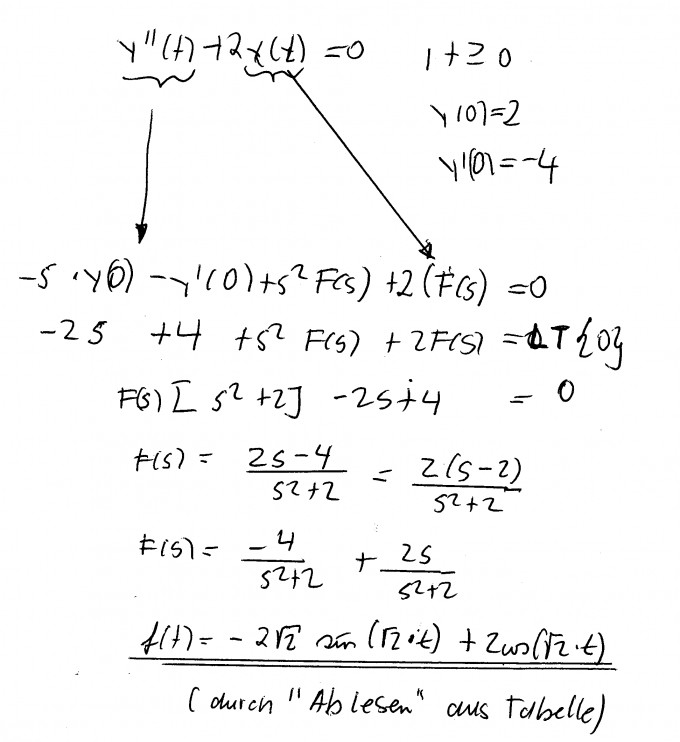 y''(t) + 2y(t) = 0 , t ≥ 0
y(0) = 2
y'(0) = -4
-s · y(0) - y'(0) + s² F(s) + 2(F(s) = 0
-2s + 4 + s² F(s) + 2F(s) = LT{0}
F(s) [ s² + 2 ] - 2s + 4 = 0
F(s) = (2s - 4)/(s² + 2) = 2(s - 2)/(s² + 2)
F(s) = -4/(s² + 2) + 2s/(s² + 2)
f(t) = - 2√2 sin (√2 · t) + 2cos(√2 · t)
( durch "Ablesen" aus Tabelle)